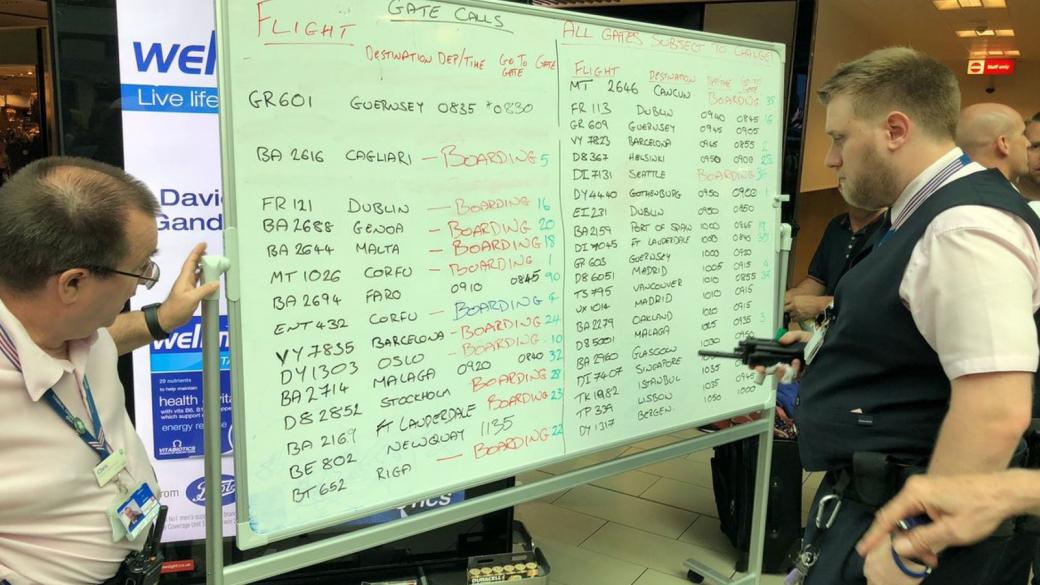 GATE CALLS
FLIGHT
DESTINATION DEP/TIME GO TO GATE GATE
GR601 GUERNSEY 0835 *0830
BA 2616 CAGLIARI — BOARDING 5
FR 121 DUBLIN — BOARDING 16
BA 2688 GENOA — BOARDING 20
BA 2644 MALTA — BOARDING 18
MT 1026 CORFU — BOARDING 1
BA 2694 FARO 0910 0845 90
ENT 432 CORFU — BOARDING
VY 7835 BARCELONA — BOARDING 24
DY1303 OSLO — BOARDING 10
BA 2714 MALAGA 0920 0840 32
D8 2852 STOCKHOLM BOARDING 28
BA 2169 FT LAUDERDALE BOARDING 23
BE 802 NEWQUAY 1135
BT 652 RIGA — BOARDING 22
ALL GATES SUBJECT TO CHANGE!
FLIGHT DESTINATION
MT 2646 CANCUN BOARDING
FR 113 DUBLIN 0940 0845 16
GR 609 GUERNSEY 0945 0905
VY 7823 BARCELONA 0945 0855 2
D8 367 HELSINKI 0950 0900
DI 7131 SEATTLE BOARDING
DY4440 GOTHENBURG 0950 0900 1
EI 231 DUBLIN 0950 0850
BA 2159 PORT OF SPAIN 1000
DI 7045 FT LAUDERDALE 1000
GR 603 GUERNSEY 1000 0920
D8 6051 MADRID 1005 0915
TS 795 VANCOUVER 1010 0855
UX 1014 MADRID 1010 0915
BA 2279 OAKLAND 1010 0915
D8 5001 MALAGA 0935 3
BA 2960 GLASGOW
DI 7407 SINGAPORE
TK 1982 ISTANBUL 1035
TP 339 LISBON 1035
DY 1317 BERGEN 1050 1000
Staff only
wel
Live life
David
Gand
wellm
29 nutrients
to help maintain
health
energy re
VITABIOTICS
from
Ford
DURACELL